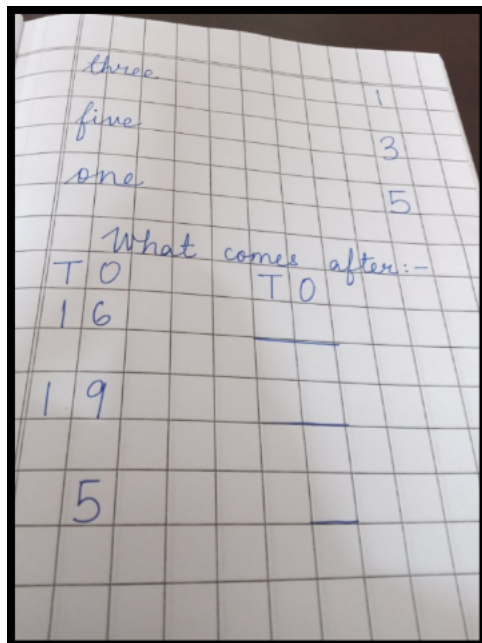 three 1
five 3
one 5
What comes after:-
T O T O
1 6
1 9
5